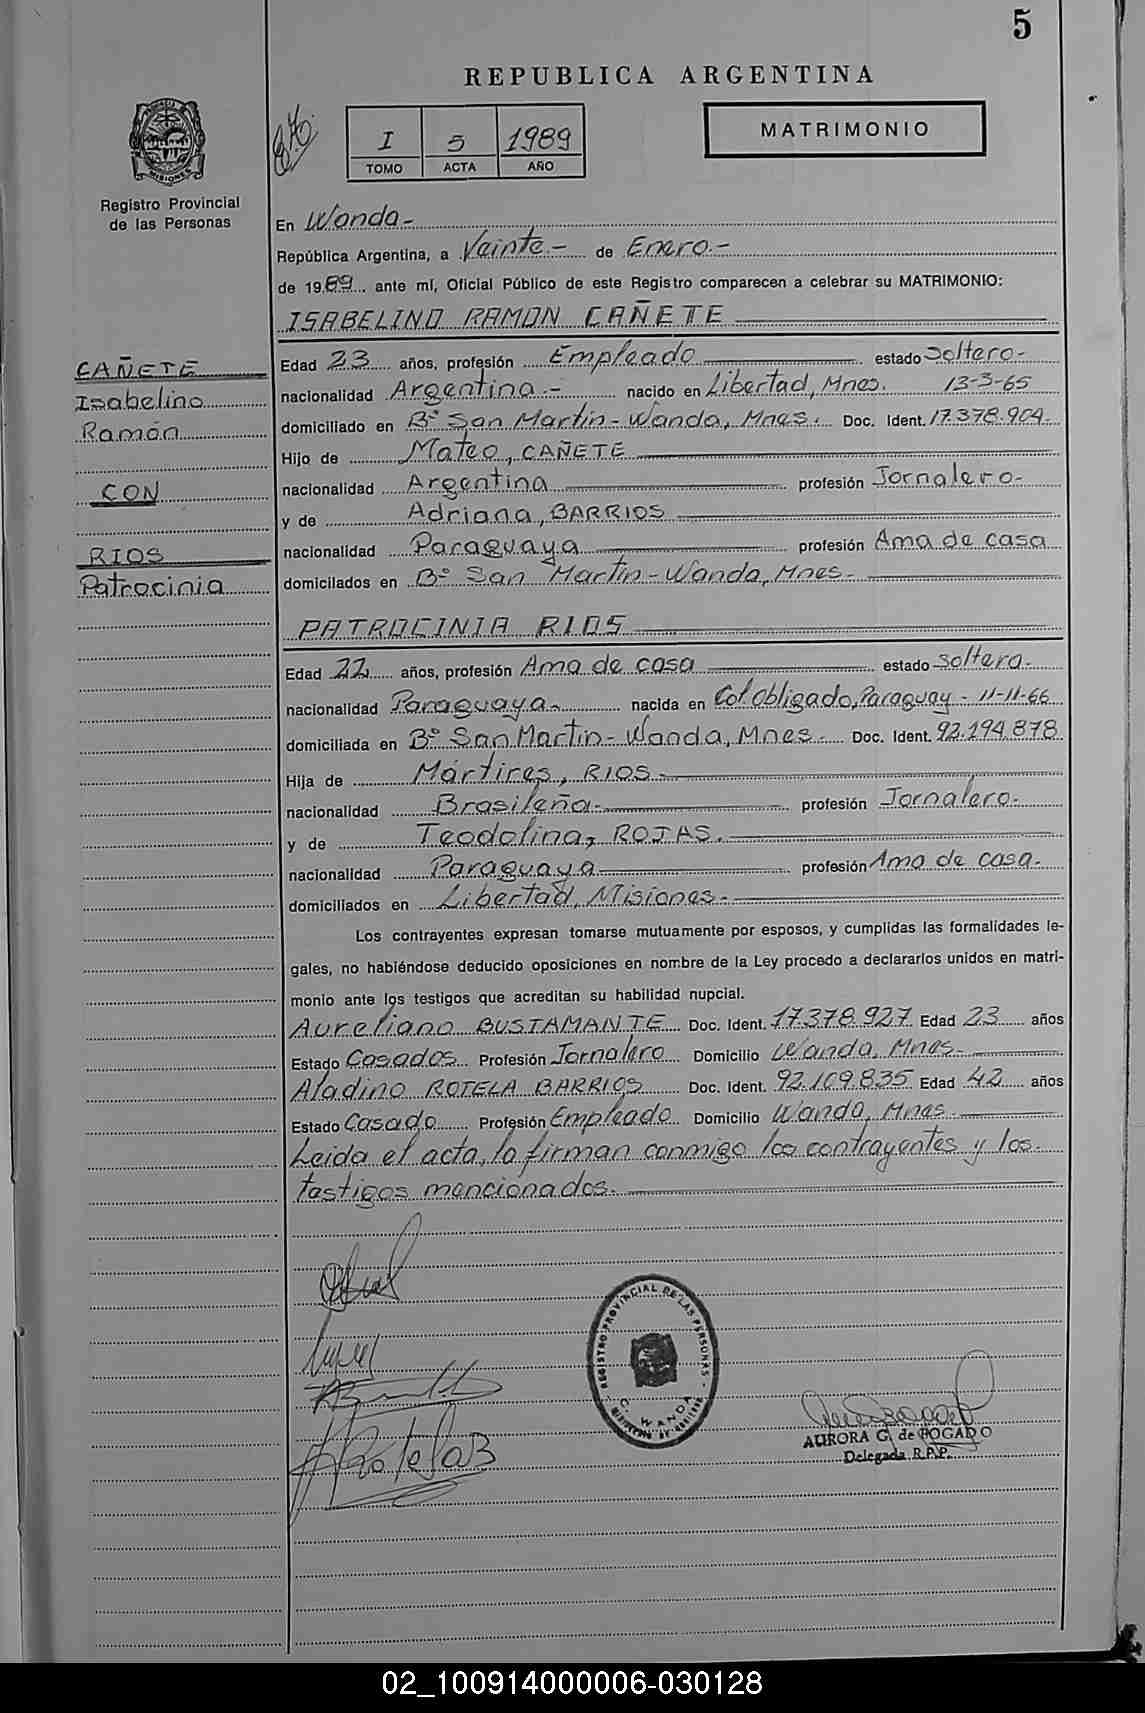 5
REPUBLICA ARGENTINA
I 5 1989
TOMO ACTA AÑO
MATRIMONIO
MISIONES
Registro Provincial
de las Personas
CAÑETE
Isabelino
Ramón
CON
RIOS
Patrocinia
En Wanda-
República Argentina, a Veinte.- de Enero.-
de 1989 ante mí, Oficial Público de este Registro comparecen a celebrar su MATRIMONIO:
ISABELINO RAMON CAÑETE
Edad 23 años, profesión Empleado estado Soltero-
nacionalidad Argentina.- nacido en Libertad, Mnes. 13-3-65
domiciliado en Bº San Martin-Wanda, Mnes. Doc. Ident. 17.378.904
Hijo de Mateo, CAÑETE
nacionalidad Argentina profesión Jornalero-
y de Adriana, BARRIOS
nacionalidad Paraguaya profesión Ama de casa
domicilados en Bº San Martin-Wanda, Mnes-
PATROCINIA RIOS
Edad 22 años, profesión Ama de casa estado soltera.
nacionalidad Paraguaya- nacida en Col. Obligado, Paraguay - 11-11-66
domiciliada en Bº San Martin-Wanda, Mnes- Doc. Ident. 92.194.878
Hija de Mártires, RIOS-
nacionalidad Brasileña- profesión Jornalero.
y de Teodolina, ROJAS.
nacionalidad Paraguaya profesión Ama de casa.
domiciliados en Libertad, Misiones-
Los contrayentes expresan tomarse mutuamente por esposos, y cumplidas las formalidades le-
gales, no habiéndose deducido oposiciones en nombre de la Ley procedo a declararlos unidos en matri-
monio ante los testigos que acreditan su habilidad nupcial.
Aureliano BUSTAMANTE Doc. Ident. 17.378.927 Edad 23 años
Estado Casados Profesión Jornalero Domicilio Wanda, Mnes-
Aladino ROTELA BARRIOS Doc. Ident. 92.109.835 Edad 42 años
Estado Casado Profesión Empleado Domicilio Wanda, Mnes-
Leida el acta, la firman conmigo los contrayentes y los
testigos mencionados.
REGISTRO PROVINCIAL DE LAS PERSONAS
C. WANDA
ARotelaB
AURORA G. de BOGADO
Delegada R.P.P.
02_100914000006-030128